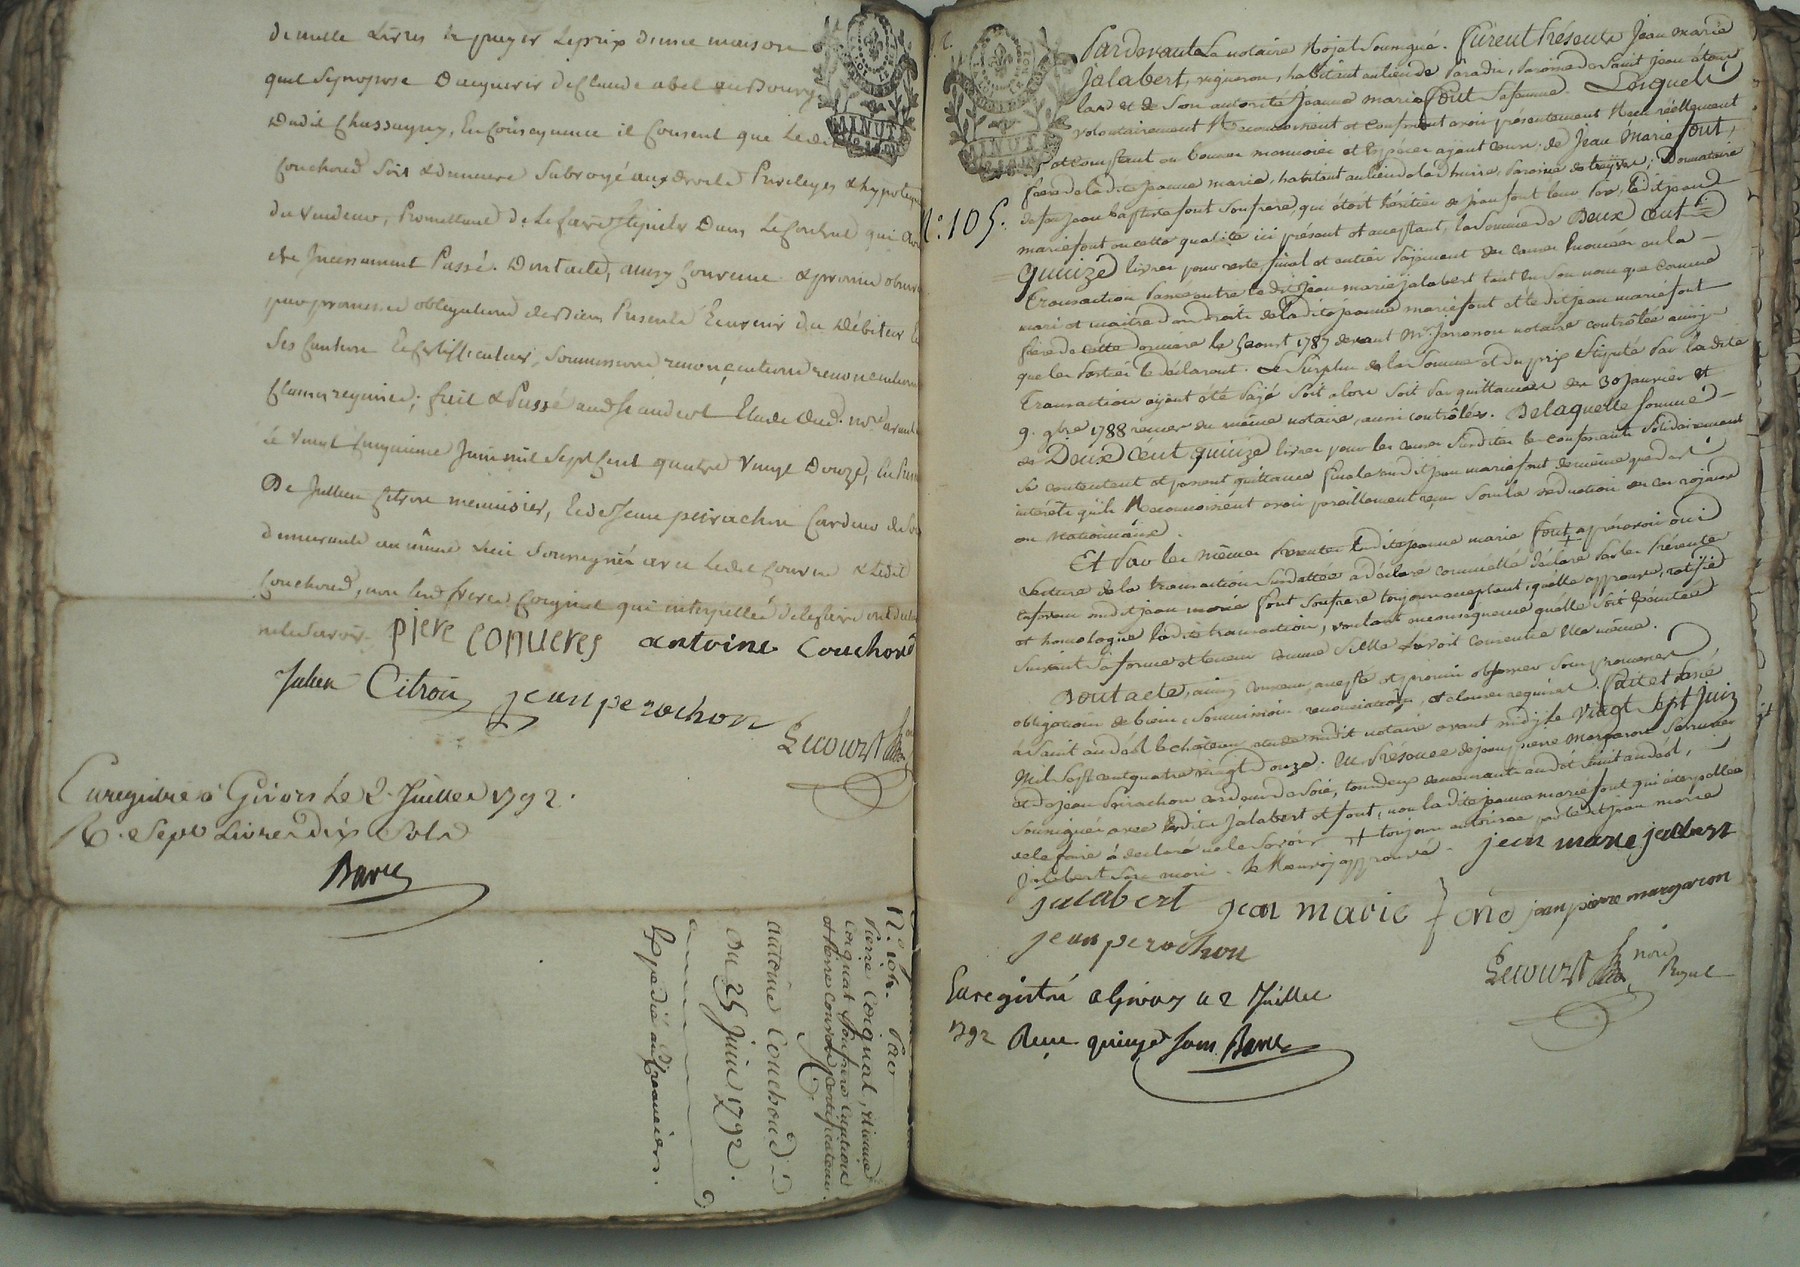 de mille Livres de payer le prix d'une maison
quil se propose d'acquerir de Claude abel au Bourg
Dudit Chassagny, En Conséquence il Consent que Ledit
Couchoud Soit & demeure Subrogé aux droits Privileges & hypoteques
du Vendeur, Promettant de le faire Stipuler Dans Le Contrat qui
etre Incessament Passé. Dont acte, ainsy Convenu & promis observer
par promesse obligations de Biens Presents & avenir du Débiteur
Ses Caution & Certifficateur, Soumissions renonçiations
Clauses requises; fait & Passé audit St andeol Etude dud. nore avant
le Vingt Cinquieme Juin mil Sept Cent quatre Vingt Douze, En Presence
De Jullien Citron menuisier, & de Jean peirachon Cardeur de soie
demeurants au même Lieu Soussignés avec Ledit Convers & Ledit
Couchoud, non les freres Corquat qui interpellés de le faire ont déclaré
ne le Savoir.
piere converes antoine Couchoud
Julien Citron jean perochon
Lecourt
Enregistré à Givors Le 2. Juillet 1792.
R. Sept Livres dix Sols
Baru
N.º 104. Par
Pierre Corquat,
Corquat Son frere Caution
et Pierre Convers Certificateur.
A
antoine Couchoud
Du 25 Juin 1792.
Expedié au Creancier.
MINUT
N.º 105.
MINUT
Pardevant Le notaire Royal Soussigné. Furent Présents Jean marie
Jalabert, vigneron, habitant au lieu de Paradis, Paroisse de Saint Jean
et de Son autorité Jeanne marie Font Sa femme. Lesquels
volontairement Reconnoissent et Confessent avoir présentement Reçu réellement
et comptant en bonnes monnoies et Espèces ayant cours. de Jean Marie Font,
frere de ladite jeanne marie, habitant au lieu de la, Paroisse de; Donataire
de feu jean baptiste font Son frere, qui étoit héritier de jean font leur Pere, ledit jean
marie font en cette qualité ici présent et acceptant, la Somme de Deux Cent
Quinze livres pour reste, final et entier Payement des causes énoncées en la
Transaction Passée entre ledit jean marie jalabert tant en Son nom que Comme
mari et maitre des droits de ladite jeanne marie font et ledit jean marie font
frere de cette derniere le 5 aoust 1787 devant Mr. notaire contrôlée ainsy
que les Parties le déclarent. Le Surplus de la Somme et du prix Stipulé Par ladite
Transaction ayant été Payé Soit alors Soit Par quittances des 30 Janvier et
9. gbre 1788 reçues du même notaire, aussi contrôlées. De laquelle Somme
de Deux Cent Quinze livres pour les causes Susdites les confessants Solidairement
Se contentent et passent quittance finale audit jean marie font de même que des
intérêts qu'ils Reconnoissent avoir pareillement reçu Sous la déduction des cas royaux
ou nationnaux.
Et Par les mêmes Présentes ladite jeanne marie font + après avoir oui
Lecture de la Transaction Susdattée a déclaré comme elle déclare Par les Présentes
en faveur audit jean marie font Son frere toujours acceptant, qu'elle approuve, ratifie
et homologue ladite transaction, voulant meme quelle Soit Exécutée
Suivant Sa forme et teneur comme Si elle l'avoit consentie Elle même.
Dont acte, ainsy convenu, accepté et promis observer Sous promesses
obligations de biens, Soumissions renonciations, et clauses requises. Fait et Passé
à Saint andéol le château, étude audit notaire avant midy le Vingt Sept Juin
Mil Sept cent quatre vingt douze. En Présence de jean pierre Margaron Serrurier
et de jean Peirachon cardeur de Soie, tous deux demeurants audit Saint andéol,
Soussignés avec lesdits Jalabert et font, non ladite jeanne marie font qui interpellée
de le faire a déclaré ne le Savoir + toujours autorisée par ledit jean marie
Jalabert Son mari. le Renvoy approuvé.
jean marie jallbert
jalabert jean marie fond jean pierre margaron
jean perochon
Lecourt nore Royal
Enregistré a Givors le 2 Juillet
1792 Reçu quinze Sous. Baru